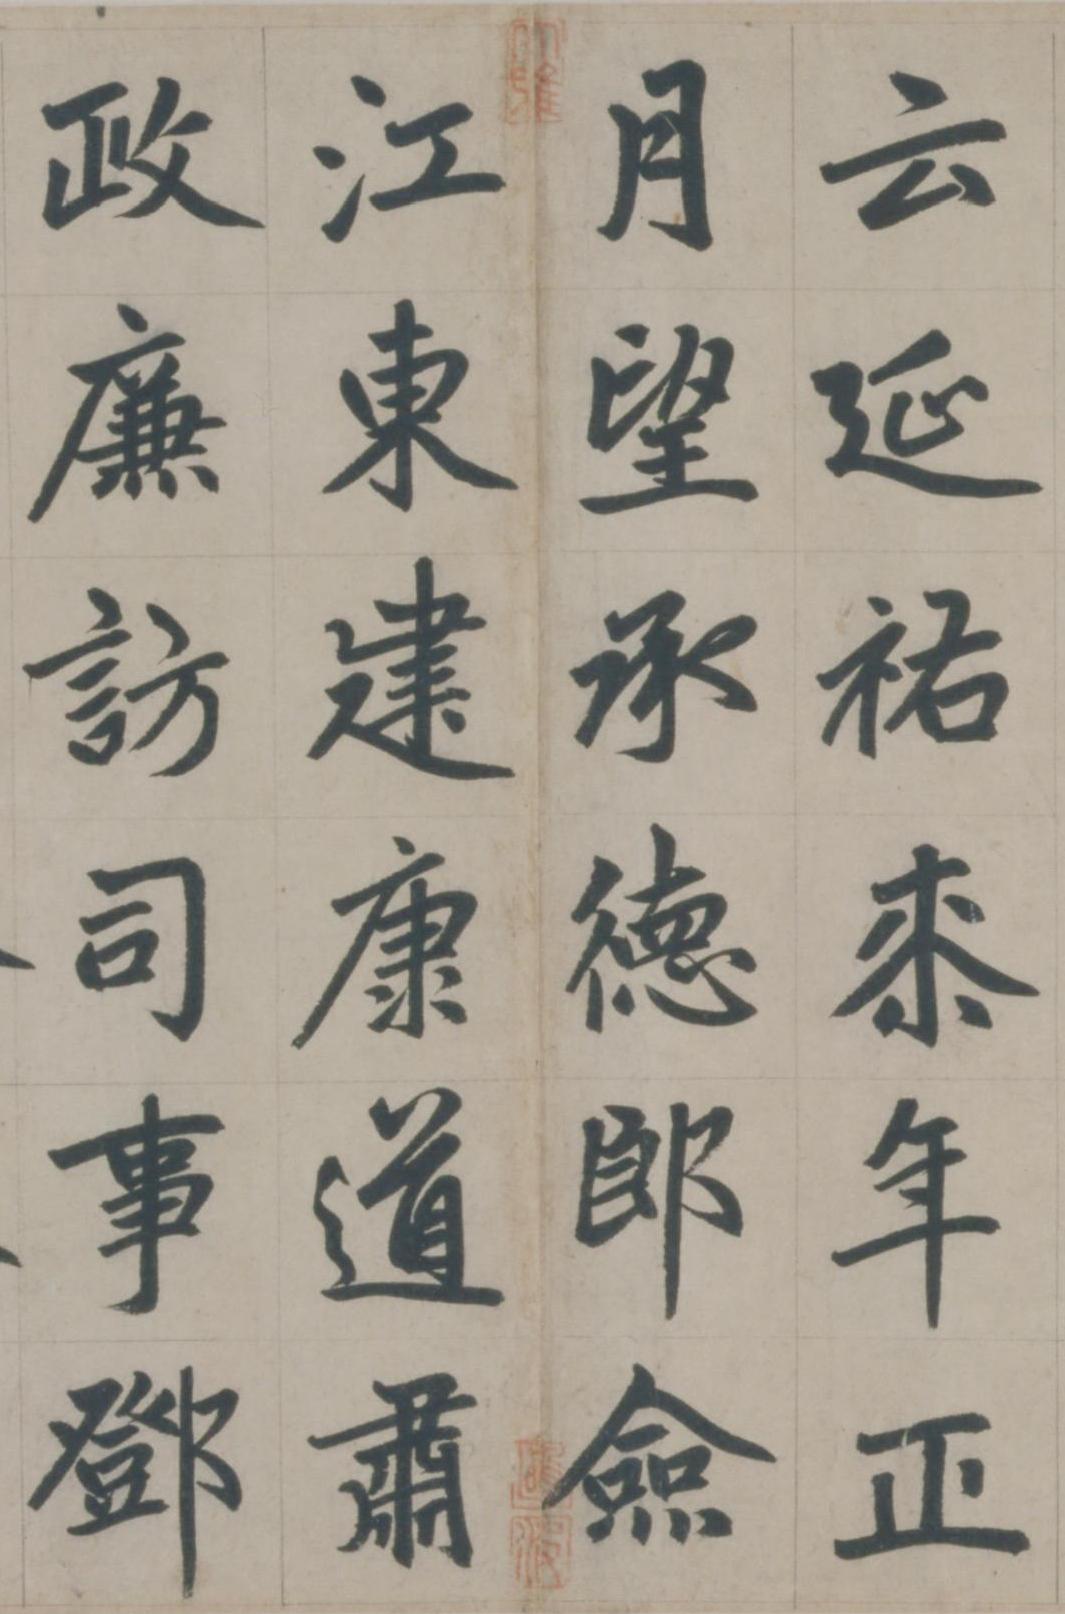 云延祐来年正
月望承德郎僉
江東建康道肅
政廉訪司事鄧